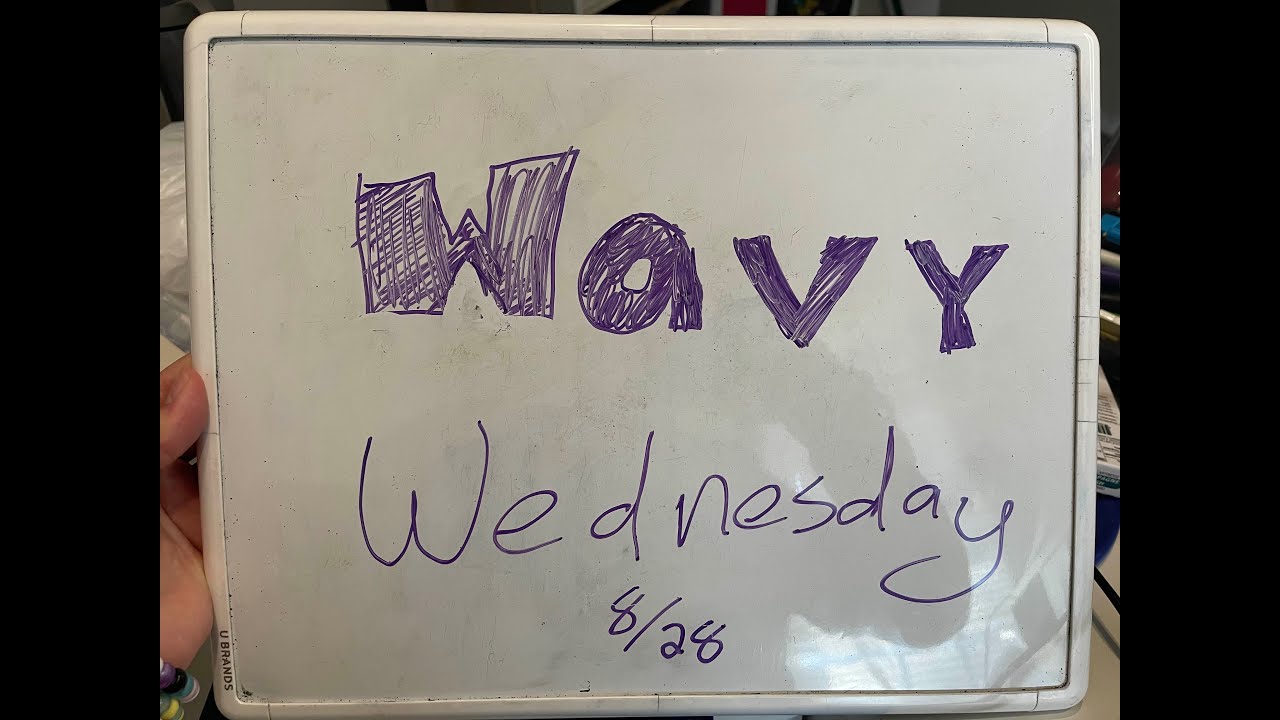 Wavy
Wednesday
8/28
U BRANDS